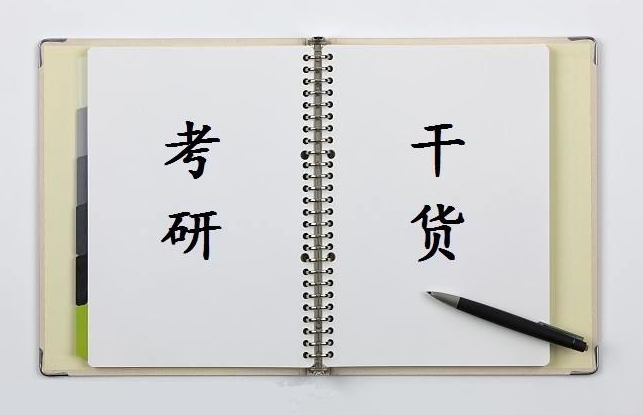 考研
干货